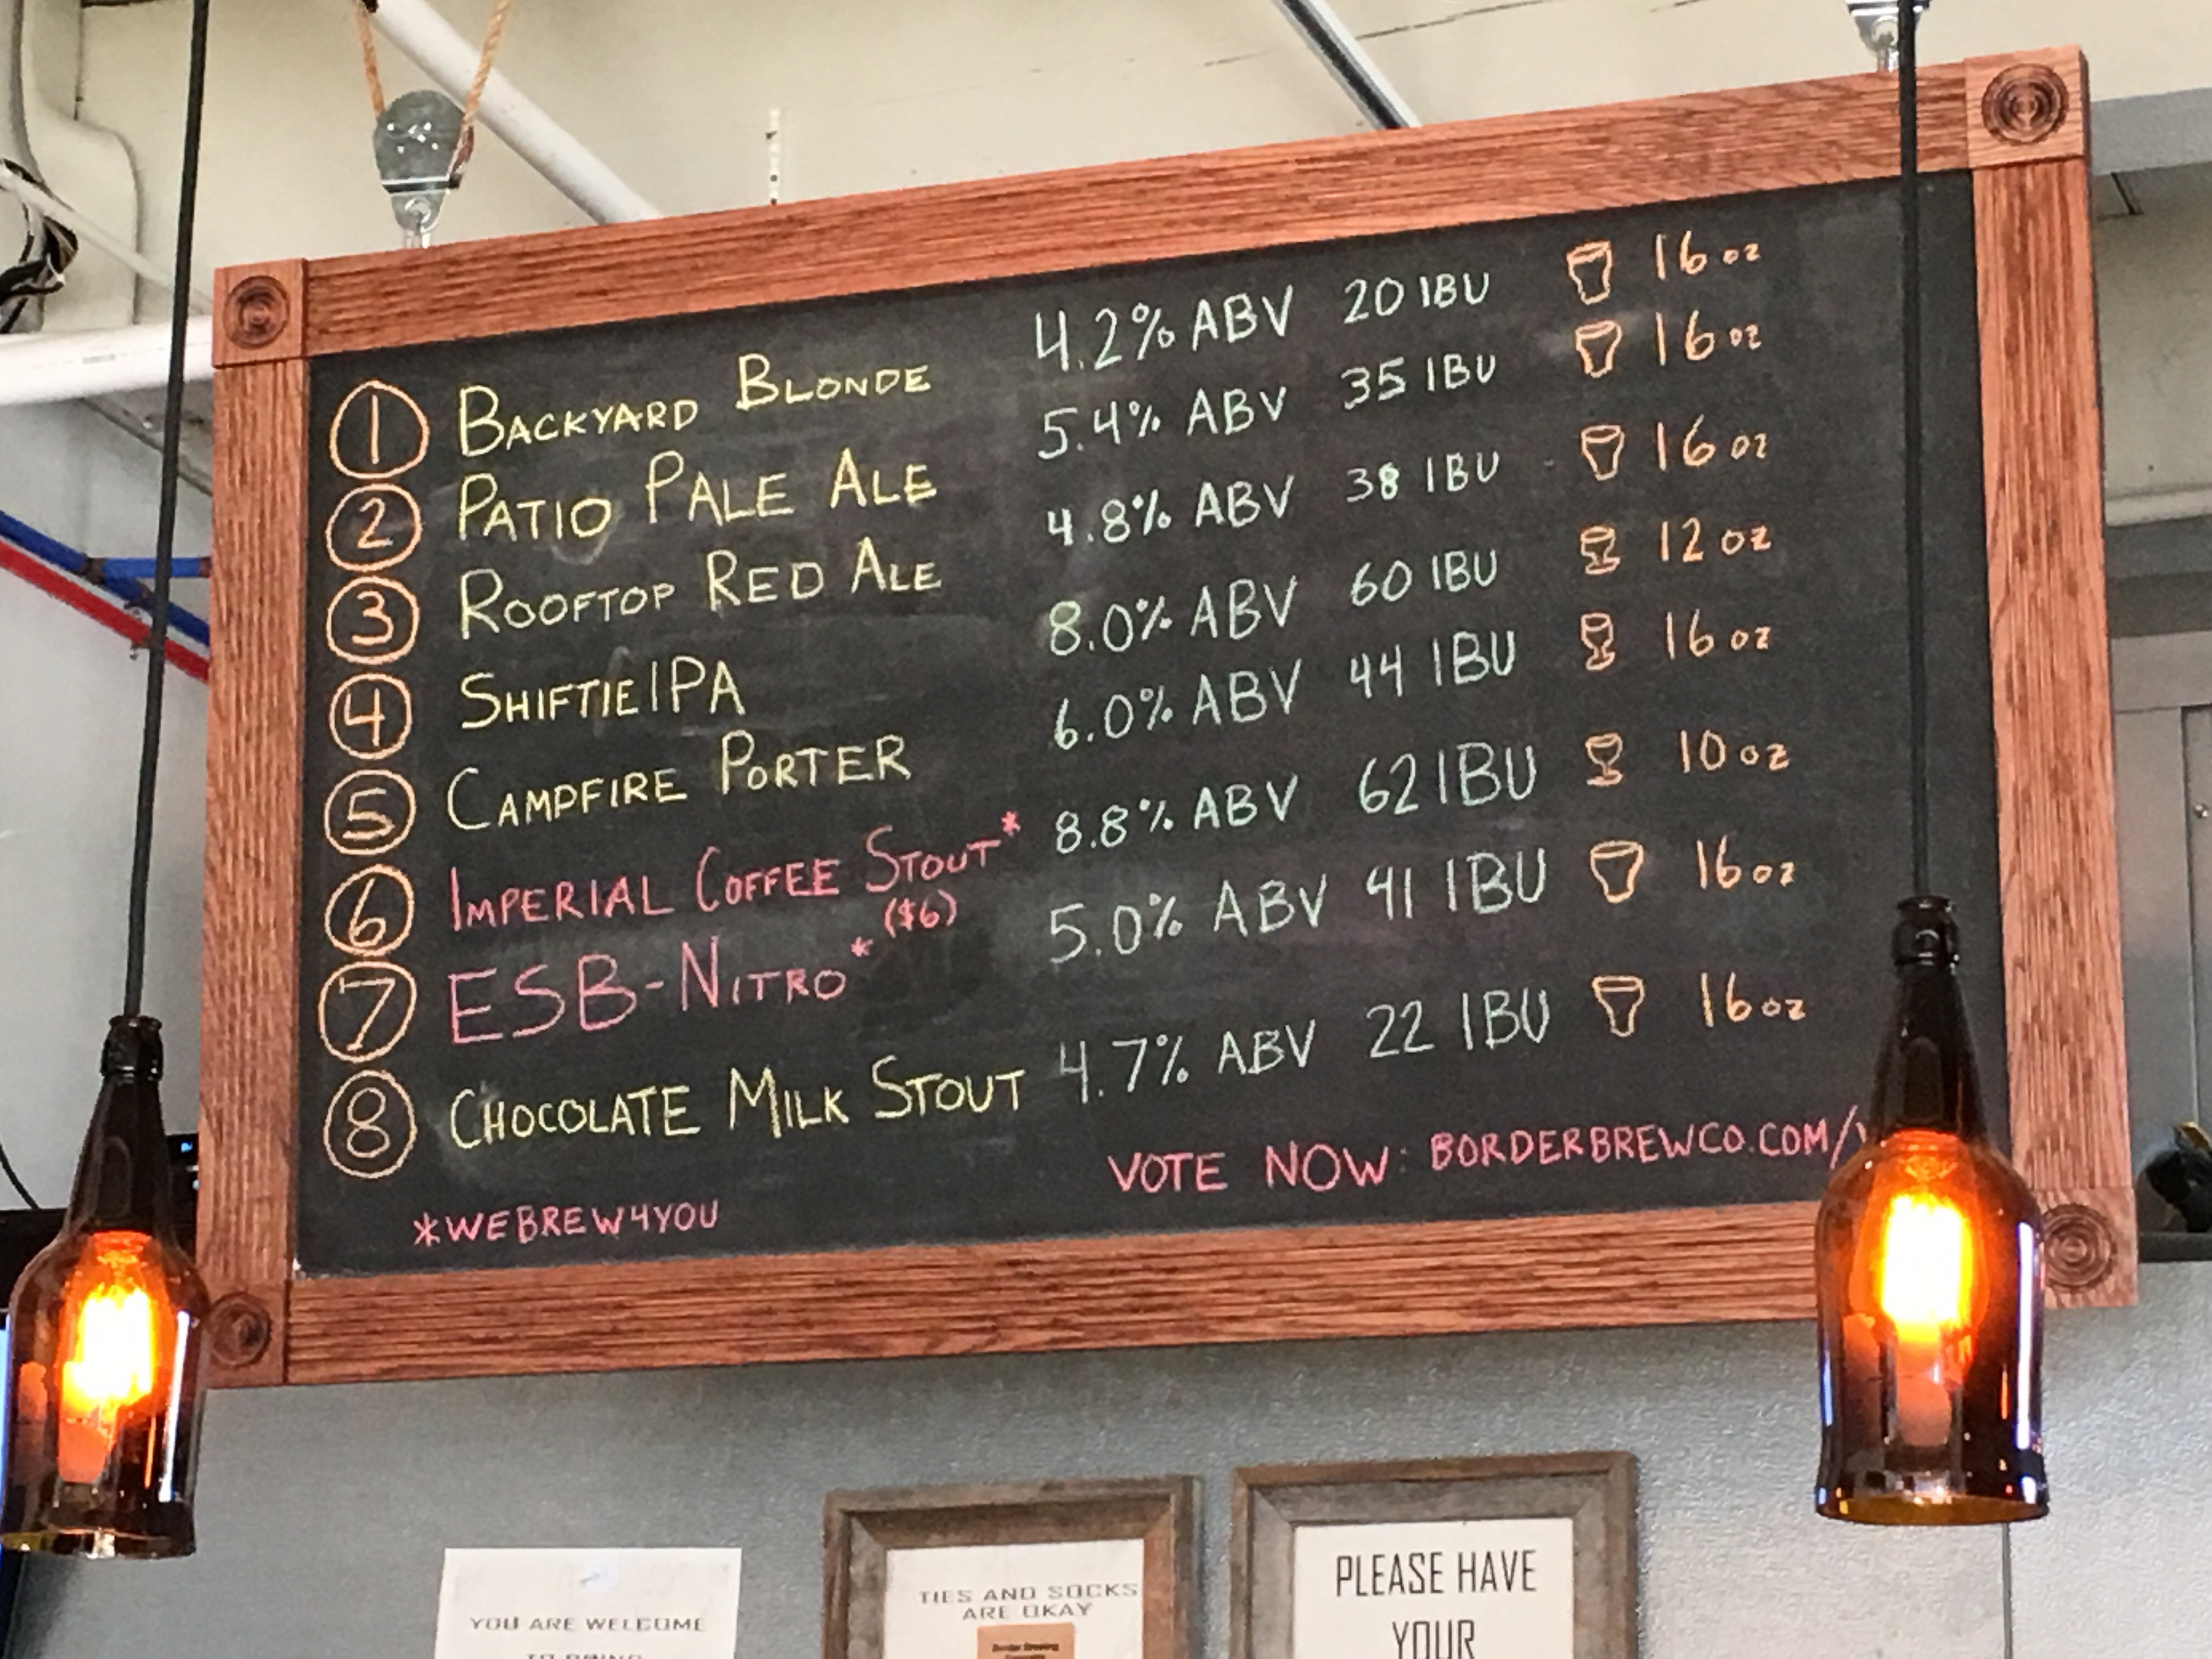 1 BACKYARD BLONDE 4.2% ABV 20 IBU 16 oz
2 PATIO PALE ALE 5.4% ABV 35 IBU 16 oz
3 ROOFTOP RED ALE 4.8% ABV 38 IBU 16 oz
4 SHIFTIE IPA 8.0% ABV 60 IBU 12 oz
5 CAMPFIRE PORTER 6.0% ABV 44 IBU 16 oz
6 IMPERIAL COFFEE STOUT* 8.8% ABV 62 IBU 10 oz
($6)
7 ESB-NITRO* 5.0% ABV 41 IBU 16 oz
8 CHOCOLATE MILK STOUT 4.7% ABV 22 IBU 16 oz
VOTE NOW: BORDERBREWCO.COM/
*WEBREW4YOU
YOU ARE WELCOME
TIES AND SOCKS
ARE OKAY
Border Brewing
PLEASE HAVE
YOUR